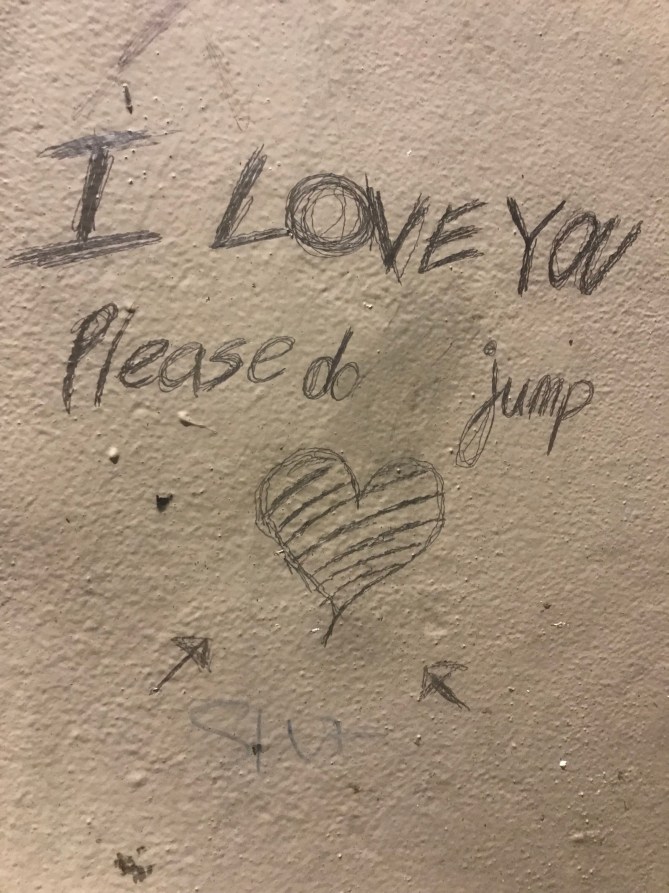 I LOVE YOU
Please do jump